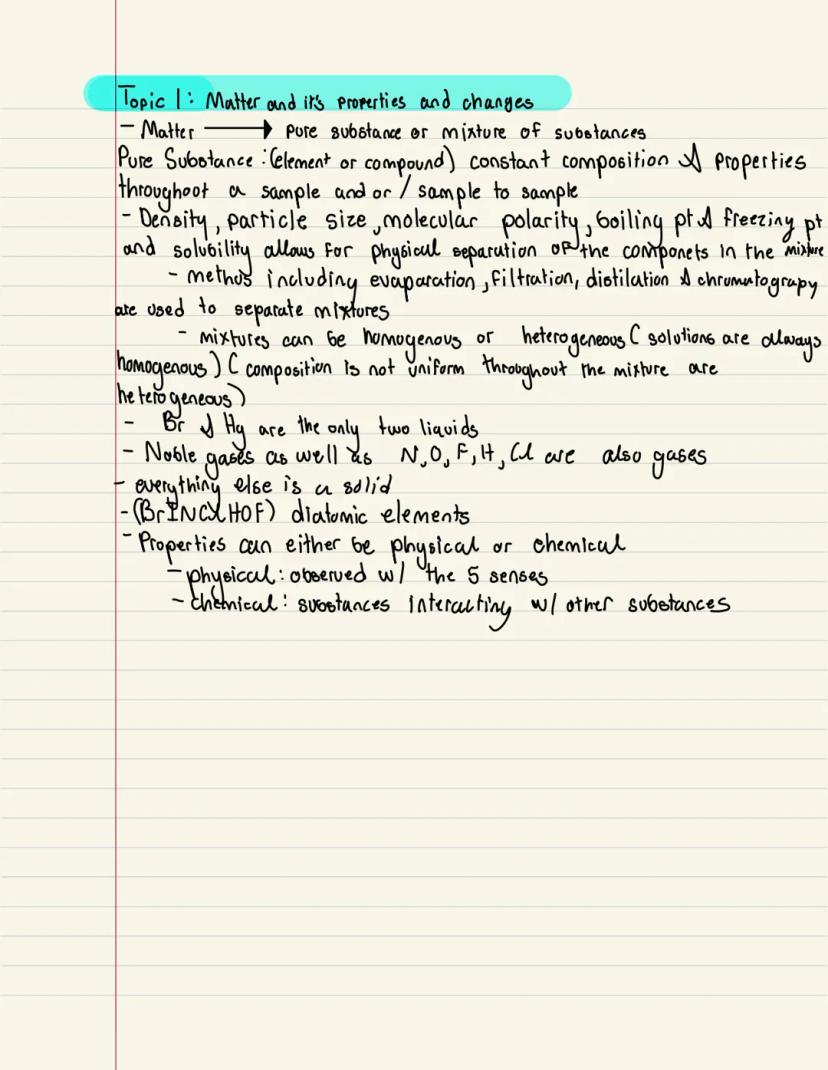 Topic 1: Matter and it's properties and changes
- Matter → pure substance or mixture of substances
Pure Substance: (element or compound) constant composition & properties
throughoot a sample and or / sample to sample
- Density, particle size, molecular polarity, boiling pt & freezing pt
and solubility allows for physical separation of the componets in the mixture
- methos including evaparation, filtration, distilation & chromatograpy
are used to separate mixtures
- mixtures can be homogenous or heterogeneous ( solutions are always
homogenous) ( composition is not uniform throughout the mixture are
heterogeneous)
- Br & Hg are the only two liquids
- Noble gases as well as N, O, F, H, Cl are also gases
- everything else is a solid
- (BrINClHOF) diatomic elements
- Properties can either be physical or chemical
- physical: observed w/ the 5 senses
- chemical: substances interacting w/ other substances